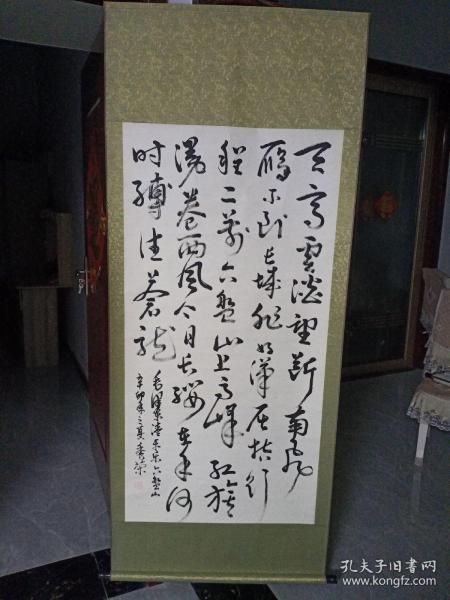 天高雲淡望断南飛
雁不到长城非好漢屈指行
程二萬六盘山上高峰红旗
漫卷西风今日长缨在手何
时缚住苍龙
毛泽东清平乐六盘山
辛卯年之夏
孔夫子旧书网
www.kongfz.com